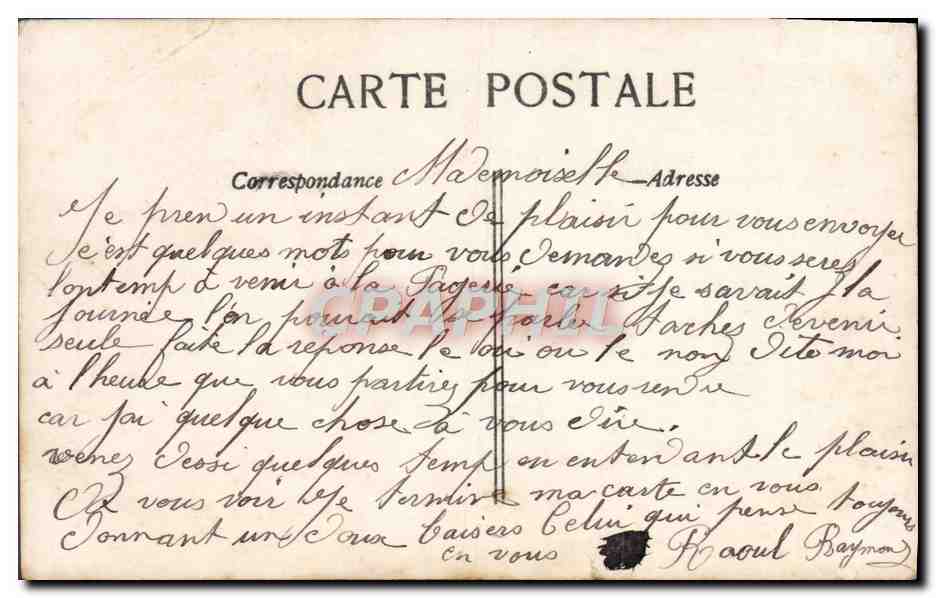 CARTE POSTALE
Correspondance Mademoiselle Adresse
Je pren un instant de plaisir pour vous envoyer
ses quelques mots pour vous demandez si vous serez
lontemp à venir à la Pagerie car si je savait la
journée l'on pourait se parler tachez de venir
seule faite la reponse le oui ou le non dite moi
à l'heure que vous partirez pour vous rendre
car jai quelque chose à vous dire.
venez dessi quelques temp en entendant le plaisir
de vous voir Je termine ma carte en vous
donnant un doux baisers Celui qui pense toujours
en vous Raoul Raymond
CPAPHIL